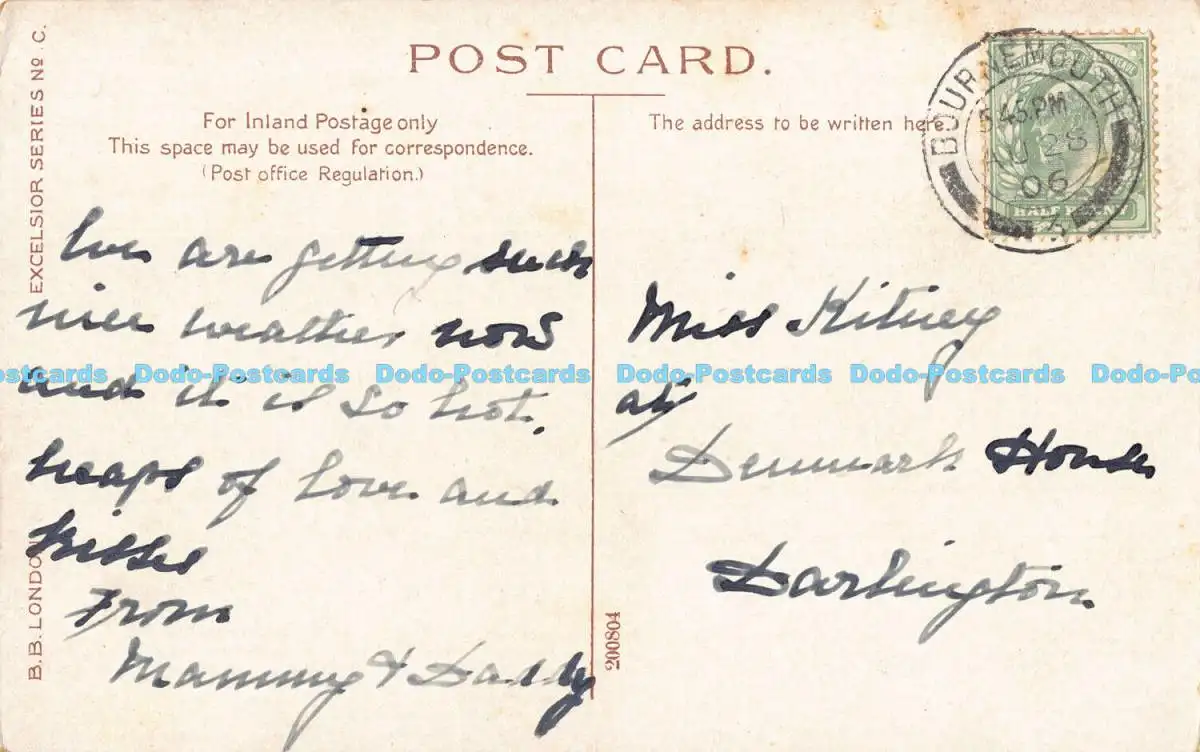 POST CARD.
For Inland Postage only
This space may be used for correspondence.
(Post office Regulation.)
The address to be written here.
BOURNEMOUTH
5.45 PM
AU 28
06
3
HALF PENNY
EXCELSIOR SERIES No C.
B.B. LONDON
We are getting such
nice weather now
and it is so hot.
heaps of love and
kisses
From
Mammy & Daddy
Miss Kitney
at
Denmark House
Darlington
200804
Dodo-Postcards Dodo-Postcards Dodo-Postcards Dodo-Postcards